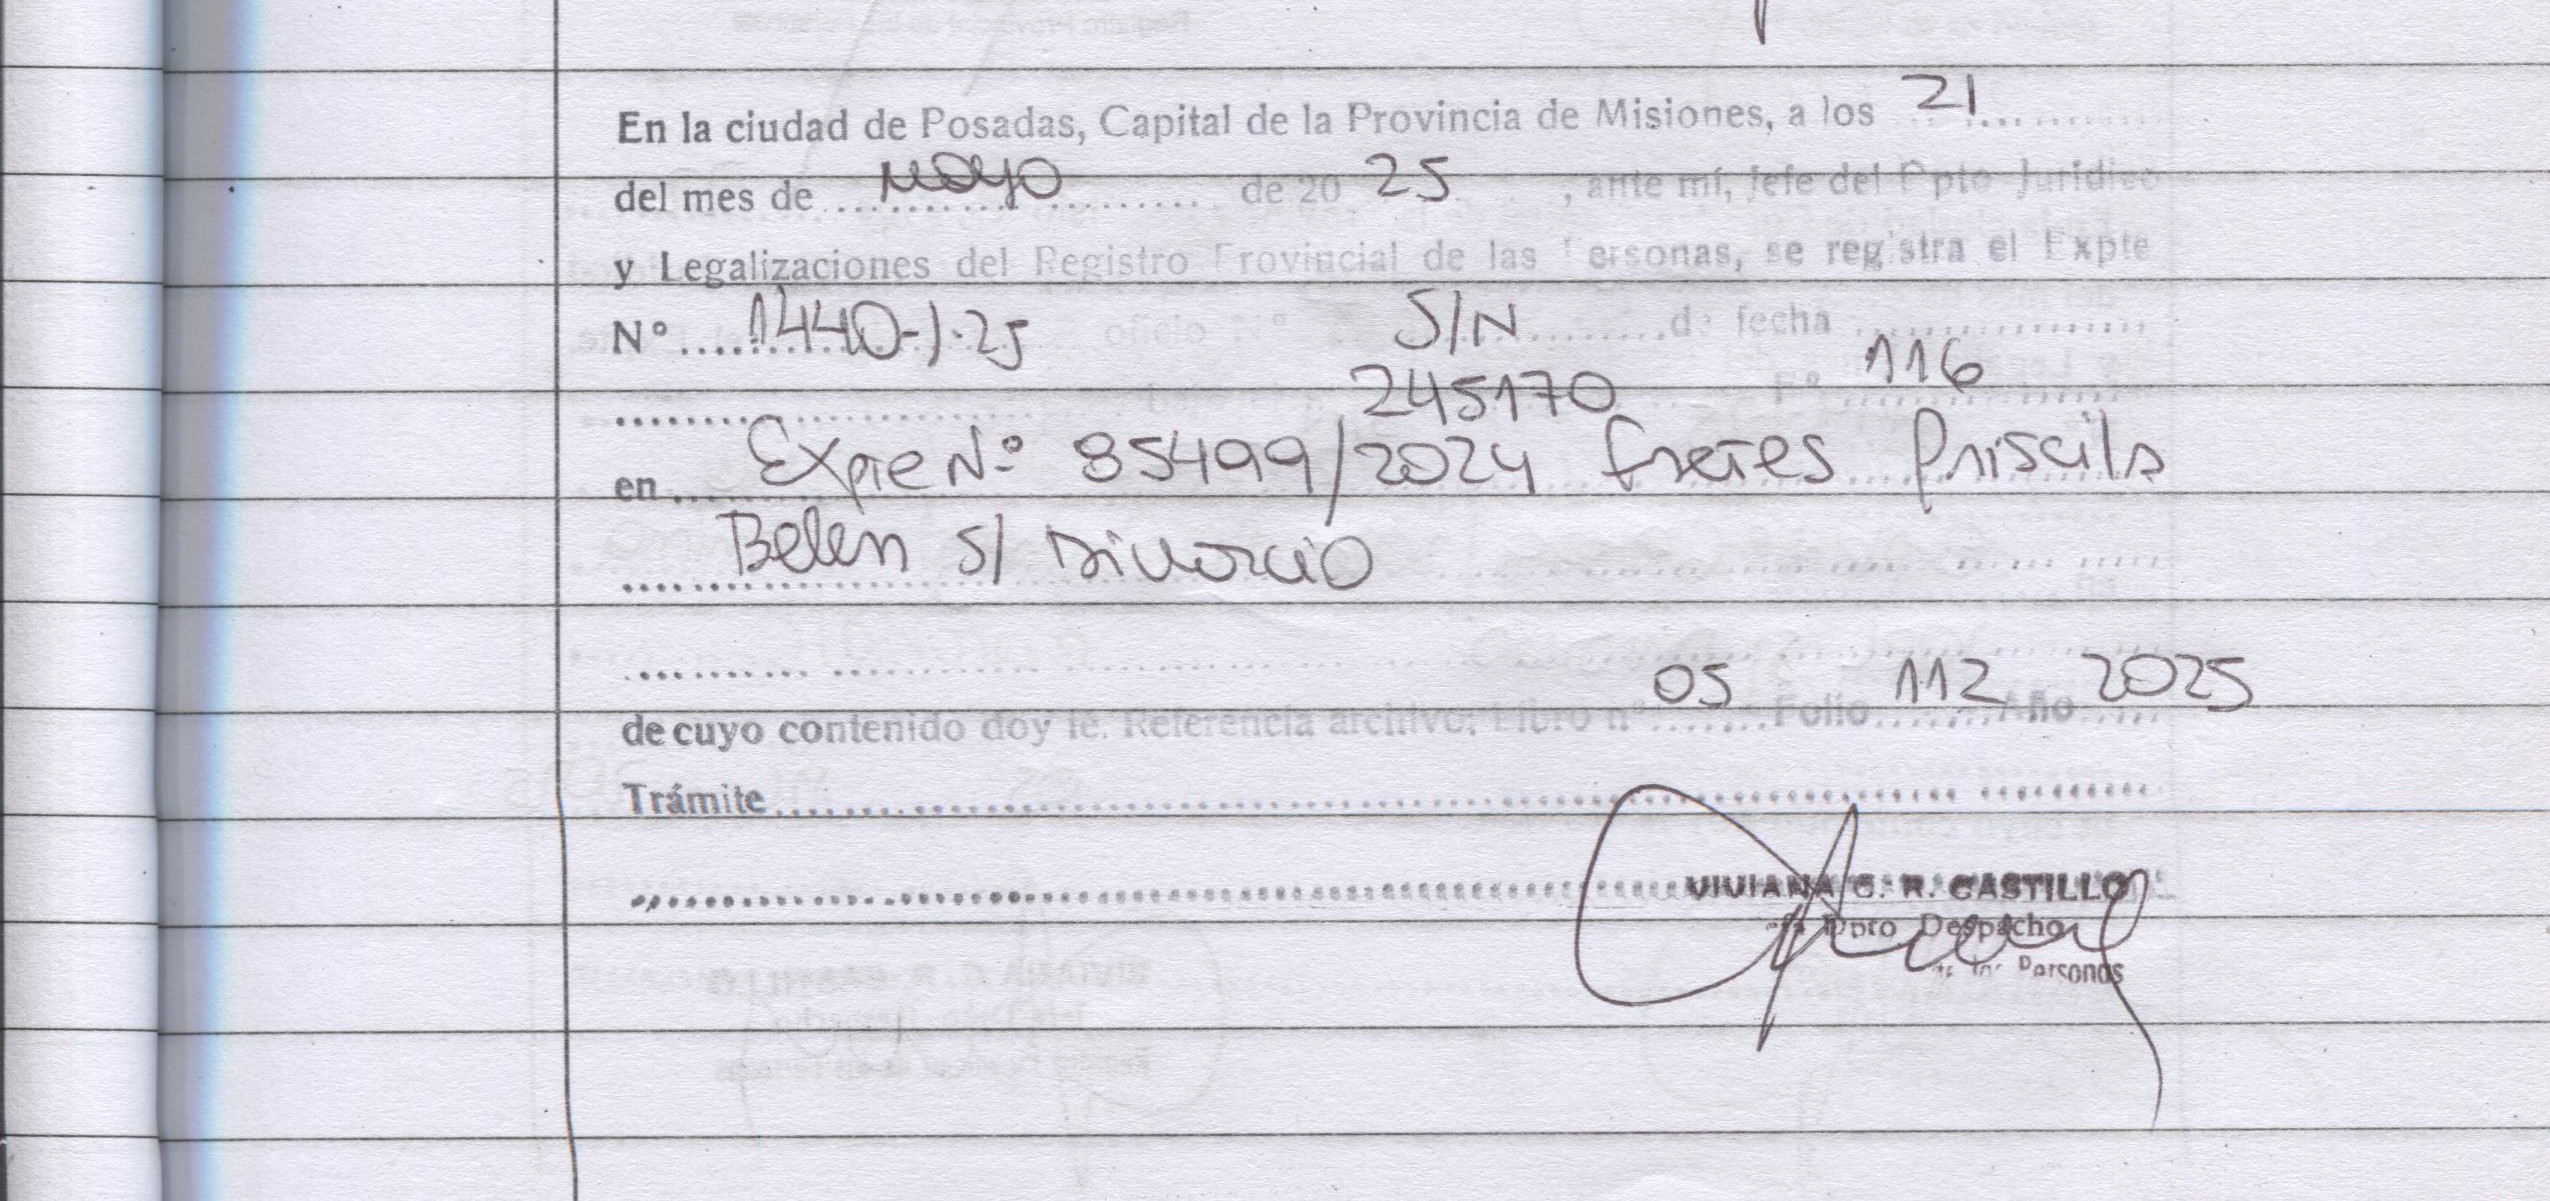 En la ciudad de Posadas, Capital de la Provincia de Misiones, a los 21
del mes de mayo de 20 25, ante mí, Jefe del Dpto Jurídico
y Legalizaciones del Registro Provincial de las Personas, se registra el Expte
N° 1440-J-25 oficio N° S/N de fecha
245170 F° 116
en Expte Nº 85499/2024 Fretes Priscila
Belen s/ Divorcio
de cuyo contenido doy fe. Referencia archivo: Libro n° 05 Folio 112 Año 2025
Trámite
VIVIANA C. R. CASTILLO
Dpto Despacho
de las Personas